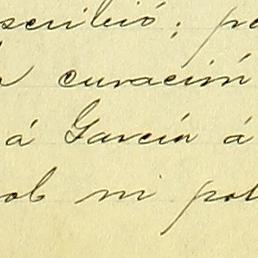 scribió; pe
curación
á García á
ob ni pot